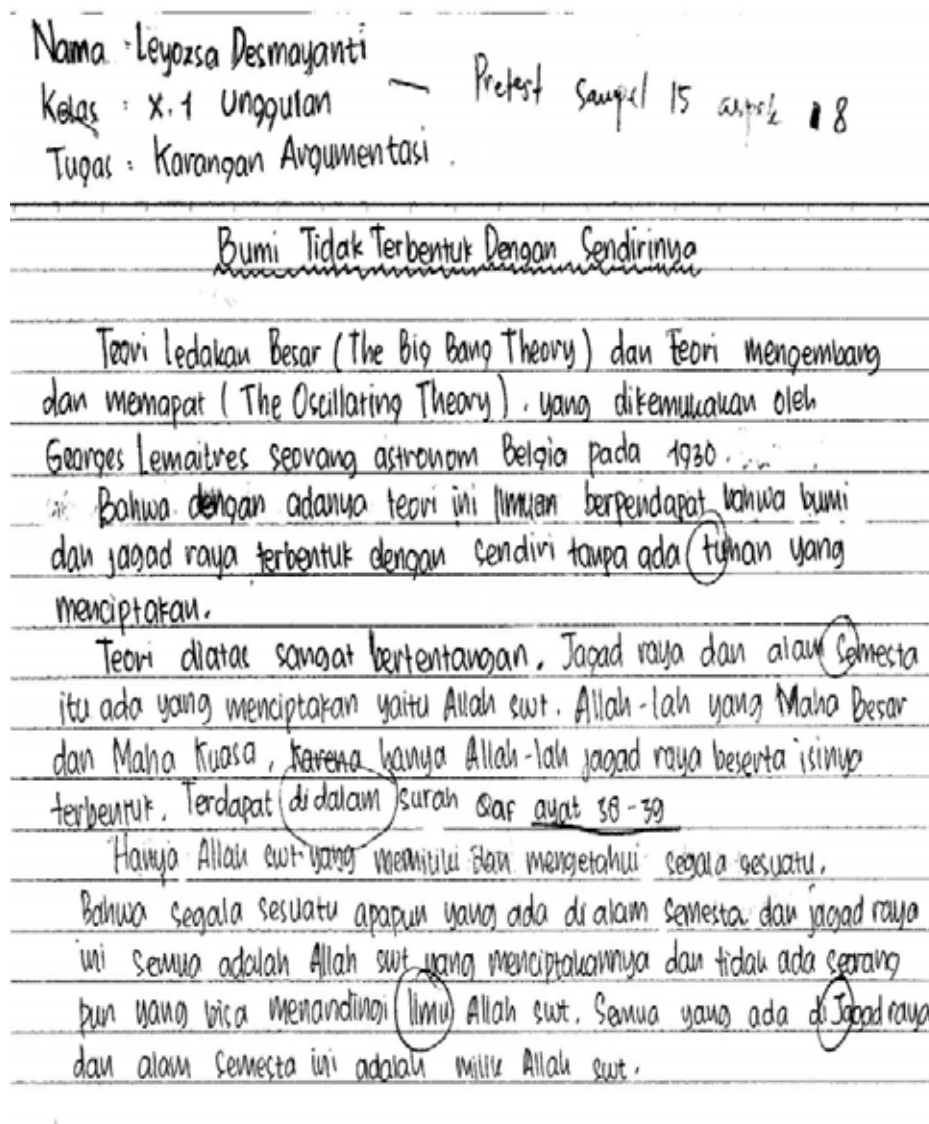 Nama : Leyozsa Desmayanti
Kelas : X.1 Unggulan
Pretest Sampel 15 aspek 8
Tugas : Karangan Argumentasi.
Bumi Tidak Terbentuk Dengan Sendirinya
Teori Ledakan Besar (The Big Bang Theory) dan teori mengembang
dan memapat (The Oscillating Theory). yang dikemukakan oleh
Georges Lemaitres seorang astronom Belgia pada 1930.
Bahwa dengan adanya teori ini Ilmuan berpendapat bahwa bumi
dan jagad raya terbentuk dengan sendiri tanpa ada tuhan yang
menciptakan.
Teori diatas sangat bertentangan. Jagad raya dan alam Semesta
itu ada yang menciptakan yaitu Allah swt. Allah-lah yang Maha Besar
dan Maha Kuasa, karena hanya Allah-lah jagad raya beserta isinya
terbentuk. Terdapat didalam surah Qaf ayat 38-39
Hanya Allah swt yang memiliki dan mengetahui segala sesuatu.
Bahwa segala sesuatu apapun yang ada di alam semesta dan jagad raya
ini semua adalah Allah swt yang menciptakannya dan tidak ada seorang
pun yang bisa menandingi Ilmu Allah swt. Semua yang ada di Jagad raya
dan alam semesta ini adalah milik Allah swt.